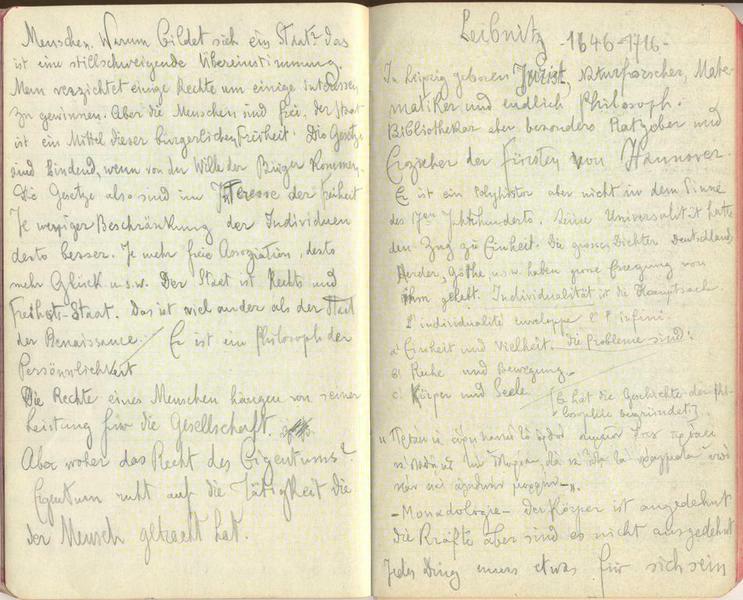 Menschen. Warum bildet sich ein Staat? das
ist eine stillschweigende Übereinstimmung.
Man verzichtet einige Rechte um einige
zu gewinnen. Aber die Menschen sind frei, der Staat
ist ein Mittel dieser bürgerlichen Freiheit. Die Gesetze
sind bindend, wenn von der Wille der Bürger kommen.
Die Gesetze also sind im Interesse der Freiheit
Je weniger Beschränkung der Individuen
desto besser. Je mehr freie Assoziation, desto
mehr Glück u.s.w. Der Staat ist Rechts und
Freiheits-Staat. Das ist viel ander als der Staat
der Renaissance. Er ist ein Philosoph der
Persönnlichkeit
Die Rechte eines Menschen hängen von seiner
Leistung für die Gesellschaft.
Aber woher das Recht des Eigentums?
Eigentum ruht auf die Tätigkeit die
der Mensch gebracht hat.
Leibnitz -1646-1716-
In Leipzig geboren Jurist, Naturforscher, Mate-
matiker und endlich Philosoph.
Bibliothekar aber besonders Ratgeber und
Erzieher der Fürsten von Hannover.
Er ist ein Polyhistor aber nicht in dem Sinne
des 17en Jahrhunderts. Seine Universalität hatte
den Zug zu Einheit. Die grossen Dichter Deutschlands
Herder, Göthe u.s.w. haben grosse Erregung von
ihm gehabt. Individualität ist die Hauptsache.
l'individualité enveloppe l'infini.
a) Einheit und Vielheit. die Probleme sind:
b) Ruhe und Bewegung.
c) Körper und Seele
[Er hat die Geschichte der Phi-
losophie begründet].
-Monadologie- der Körper ist ausgedehnt
die Kräfte aber sind es nicht ausgedehnt
Jedes Ding muss etwas für sich sein